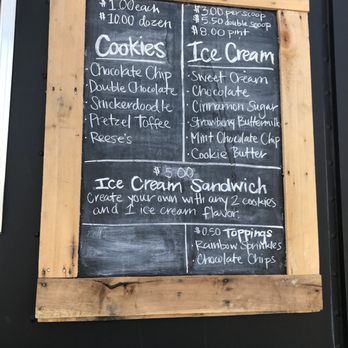 $1.00 each
$10.00 dozen
Cookies
· Chocolate Chip
· Double Chocolate
· Snickerdoodle
· Pretzel Toffee
· Reese's
$3.00 per scoop
$5.50 double scoop
$8.00 pint
Ice Cream
· Sweet Cream
· Chocolate
· Cinnamon Sugar
· Strawberry Buttermilk
· Mint Chocolate Chip
· Cookie Butter
$5.00
Ice Cream Sandwich
Create your own with any 2 cookies
and 1 ice cream flavor.
$0.50 Toppings
· Rainbow Sprinkles
· Chocolate Chips